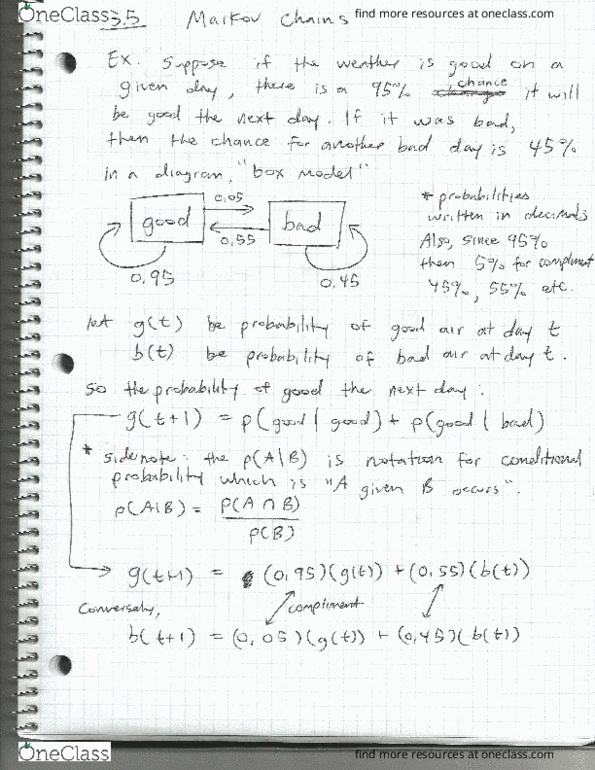 OneClass
find more resources at oneclass.com
3.5 Markov Chains
Ex. Suppose if the weather is good on a
given day, there is a 95% chance it will
be good the next day. If it was bad,
then the chance for another bad day is 45%
in a diagram, "box model"
0.05
good
bad
0.55
0.95
0.45
* probabilities
written in decimals
Also, since 95%
then 5% for compliment
45%, 55% etc.
let g(t) be probability of good air at day t
b(t) be probability of bad air at day t.
So the probability of good the next day:
g(t+1) = p(good | good) + p(good | bad)
* sidenote: the p(A|B) is notation for conditional
probability which is "A given B occurs".
p(A|B) = p(A ∩ B)
p(B)
g(t+1) = (0.95)(g(t)) + (0.55)(b(t))
Conversely,
compliment
b(t+1) = (0.05)(g(t)) + (0.45)(b(t))
OneClass
find more resources at oneclass.com